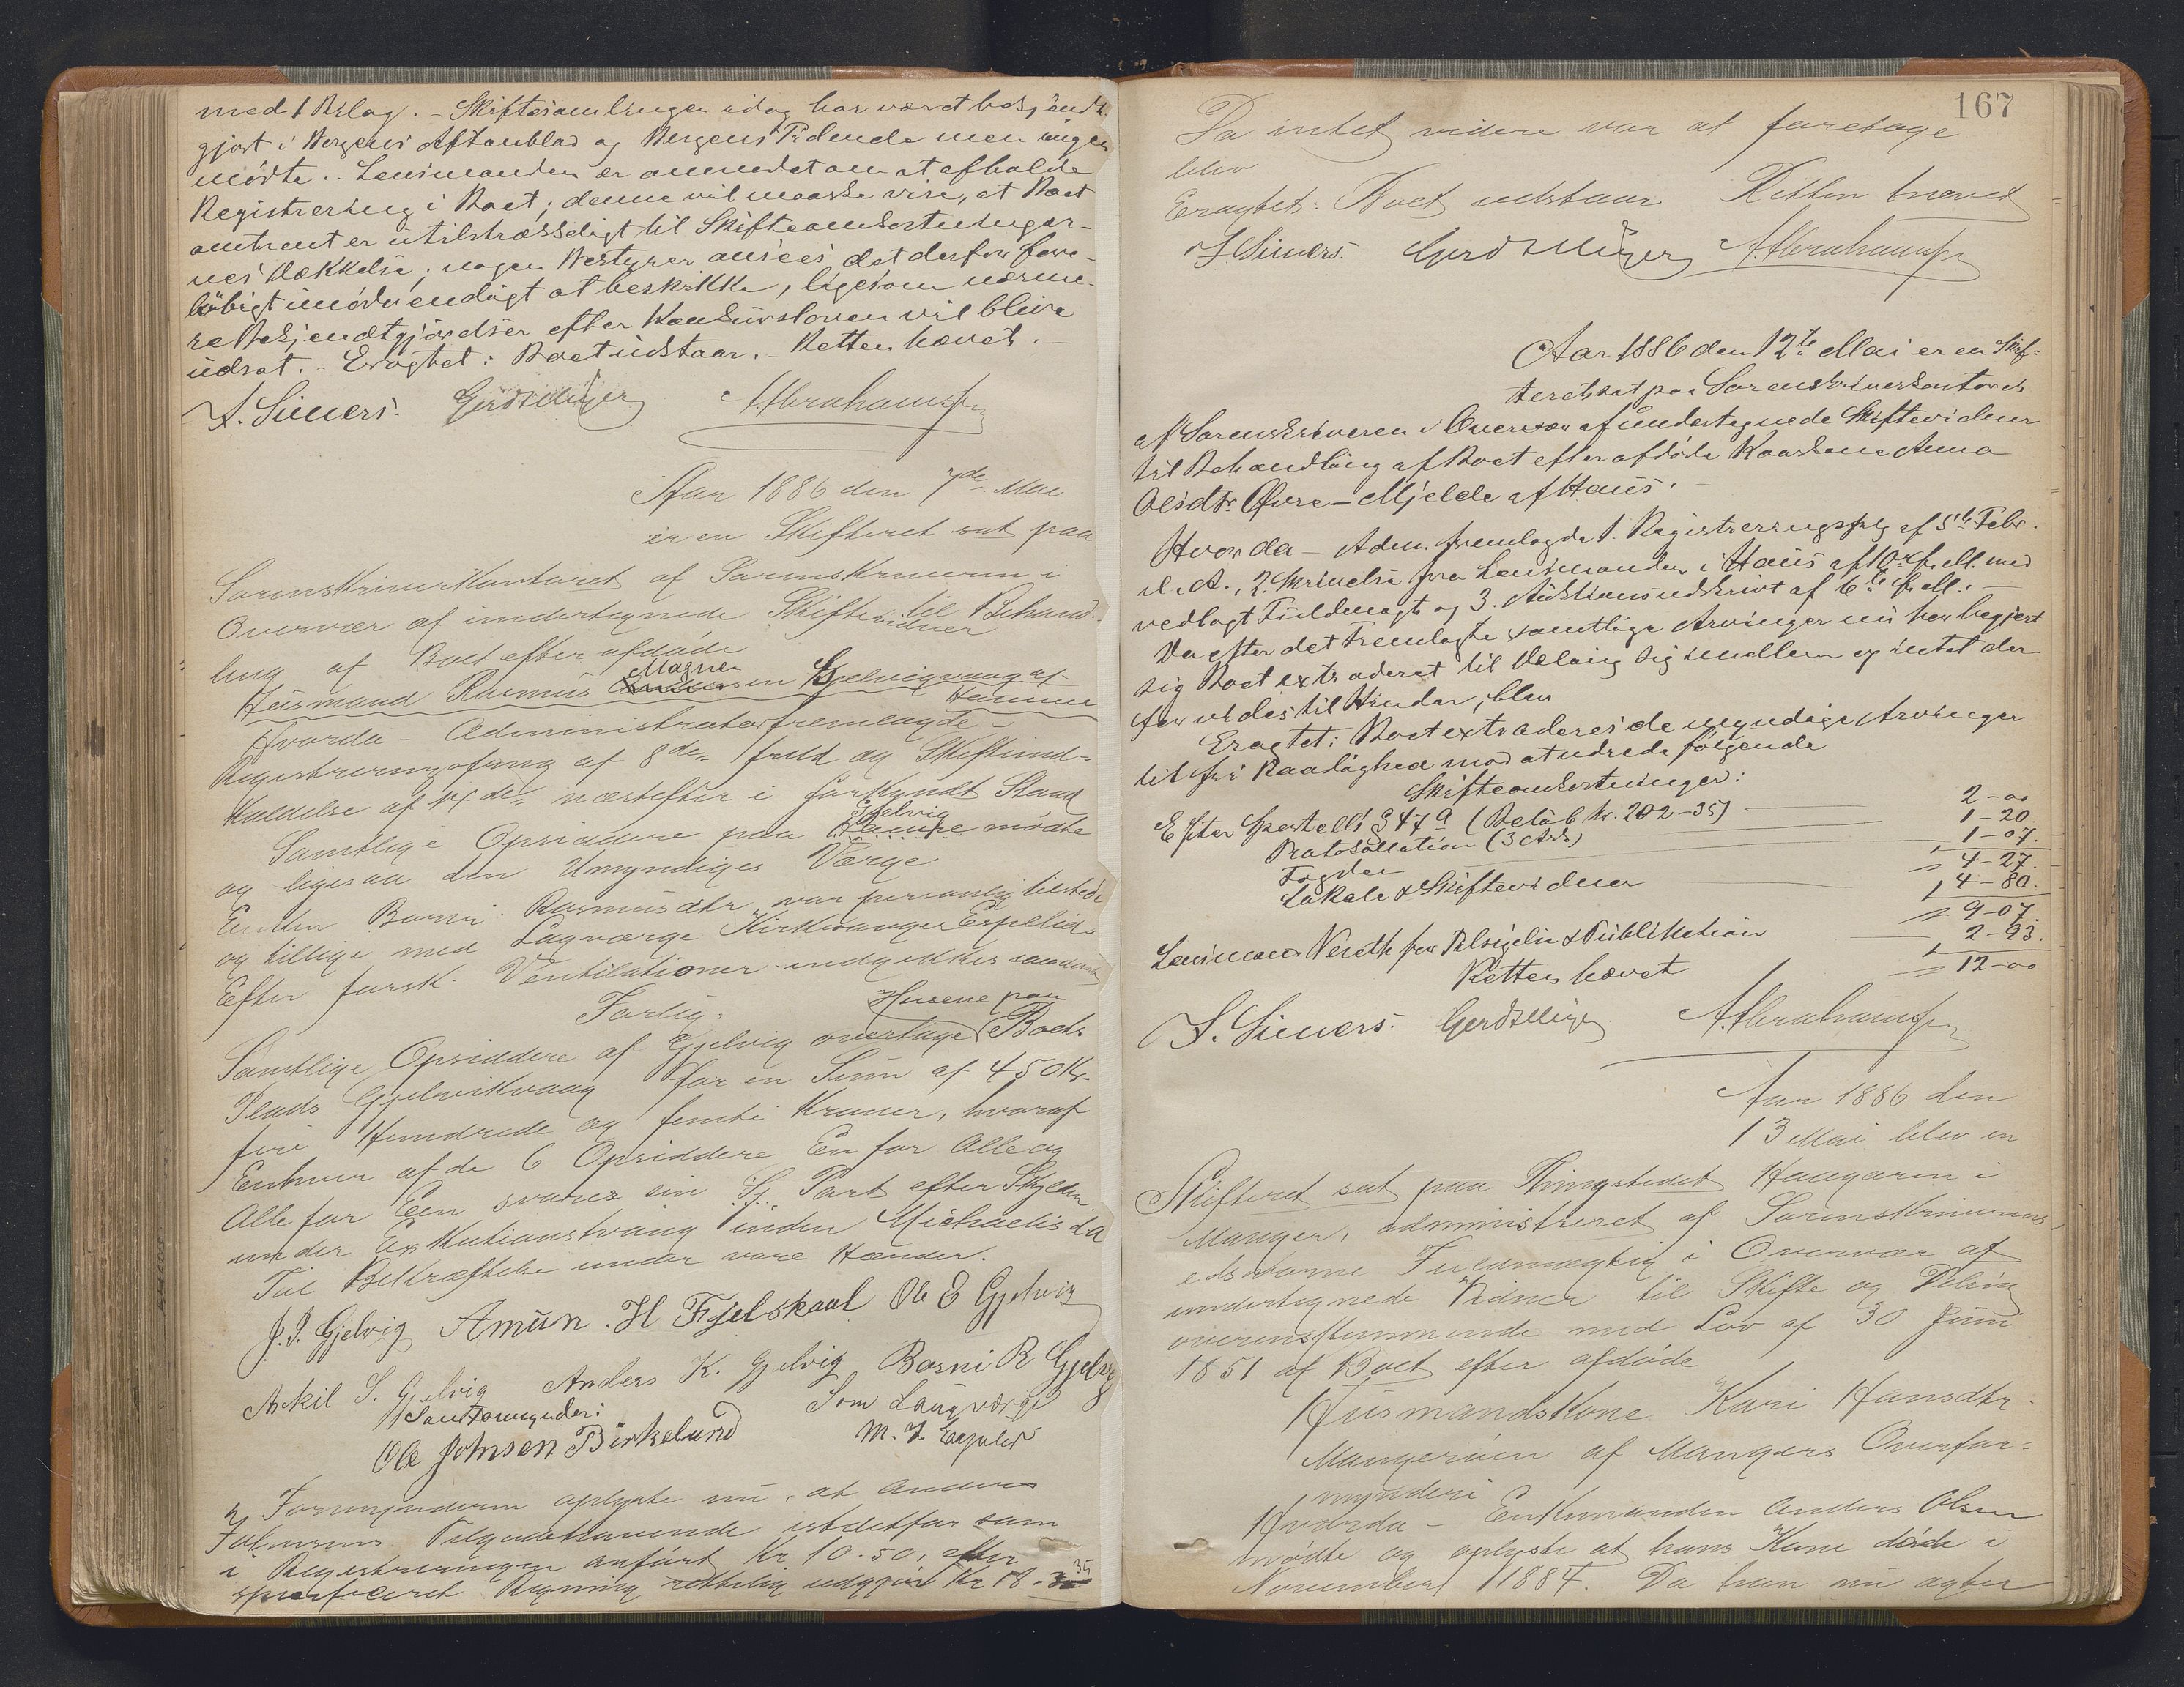 med 1 Bilag. - Skiftesamlingen idag har været bekjendt-
gjort i Bergens Aftenblad og Bergens Tidende men ingen
mödte. - Lensmanden er anmodet om at afholde
Registrering i Boet; denne vil maaske vise, at Boet
omtrent er utilstrækkeligt til Skifteomkostninger-
nes Dækkelse; nogen Bestyrer ansees det derfor fore-
löbigt unödvendigt at beskikke, ligesom nærme-
re Bekjendtgjörelser efter Konkursloven vil blive
udsat. - Eragtet: Boet udstaar. - Retten hævet. -
S. Sivers. Gerdt Meyer A. Abrahamsen
Aar 1886 den 7de Mai
er en Skifteret sat paa
Sorenskriverkontoret af Sorenskriveren i
Overvær af undertegnede Skiftevidner til Behand-
ling af Boet efter afdöde
Magnesen
Husmand Rasmus Gjelvigvaag af
Hamre
Hvorda - Administrator fremlagde -
Registreringsforr. af 8de f. Md og Skifteind-
kaldelse af 14de næstefter i forkyndt Stand
Gjelvig
Samtlige Opsiddere paa Hamre mödte
og ligesaa den Umyndiges Værge.
Enken Barni Rasmusdtr var personlig tilstede
og tillige med Lagværge Kirkesanger Espelid.
Efter forsk. Ventilationer indgikkes saadant
Forlig:
Husene paa
Samtlige Opsiddere af Gjelvig overtage Boets
Plads Gjelvikvaag for en Sum af 450 Kr.
fire Hundrede og femti Kroner, hvoraf
Enhver af de 6 Opsiddere En for Alle og
Alle for Een svarer sin Part efter Skylden
under Exkutionstvang inden Michaelis d.A
Til Bekræftelse under vore Hænder.
J. J. Gjelvig Amun. H Fjelskaal Ole E Gjelvig
Askil S. Gjelvig Anders K. Gjelvig Barni R Gjelvig
Som Formynder: Som Laugværge
Ole Johnsen Birkelund M. J. Espelid
Formynderen oplyste nu, at Anders
Tilgodehavende istedetfor som
i Registreringen anfört Kr 10.50, efter
specificeret Regning rettelig udgjör Kr 18.35
167
Da intet videre var at foretage
blev
Eragtet: Boet udstaar Retten hævet
S Sivers. Gerdt Meyer A. Abrahamsen
Aar 1886 den 12te Mai er en Skif-
teret sat paa Sorenskriverkontoret
af Sorenskriveren i Overvær af undertegnede Skiftevidner
til Behandling af Boet efter afdöde Kaarkone Anna
Olsdtr Övre-Mjelde af Haus. -
Hvorda - Adm. fremlagde 1. Registreringsforr. af 5te Febr.
d. A., 2. Skrivelse fra Lensmanden i Haus af 10de f. M. med
vedlagt Fuldmagt og 3. Auktionsudskrivt af 6te f. M. -
Da efter det Fremlagte samtlige Arvinger nu har begjært
sig Boet extraderet til Deling sig imellem og intet der-
for vides til Hinder, blev
Eragtet: Boet extraderes de myndige Arvinger
til fri Raadighed mod at udrede fölgende
Skifteomkostninger:
Efter Sportell. § 47 a (Belöb kr. 202-35) 2-00
Protokollation (3 Ark) 1-20.
Fogden 1-07.
= 4-27.
Lokale & Skiftevidner 4-80.
= 9-07.
Lensmand Nereth for Tilsigelse & Publikation 2-93.
= 12-00
Retten hævet
S. Sivers. Gerdt Meyer A. Abrahamsen
Aar 1886 den
13 Mai blev en
Skifteret sat paa Thingstedet Haugaren i
Manger, administreret af Sorenskriverens
edsvorne Fuldmægtig i Overvær af
undertegnede Vidner til Skifte og Deling
overensstemmende med Lov af 30 Juni
1851 af Boet efter afdöde
Husmandskone Kari Hansdtr.
Mangeröen af Mangers Overfor-
mynderi
Hvorda - Enkemanden Anders Olsen
mödte og oplyste at hans Kone döde i
November 1884. Da han nu agter